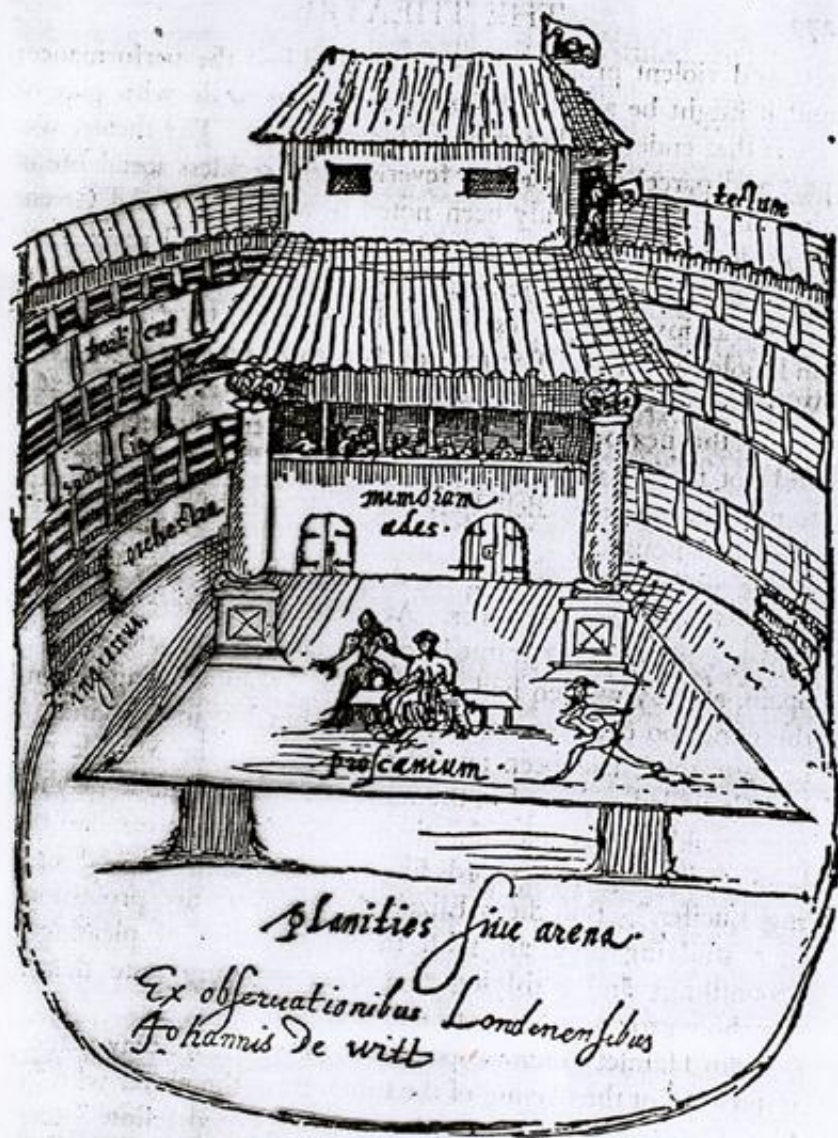 tectum
porticus
sedilia
orchestra
mimorum
ædes.
ingressus
proſcænium.
planities ſiue arena.
Ex obſeruationibus Londenenſibus
Johannis De witt